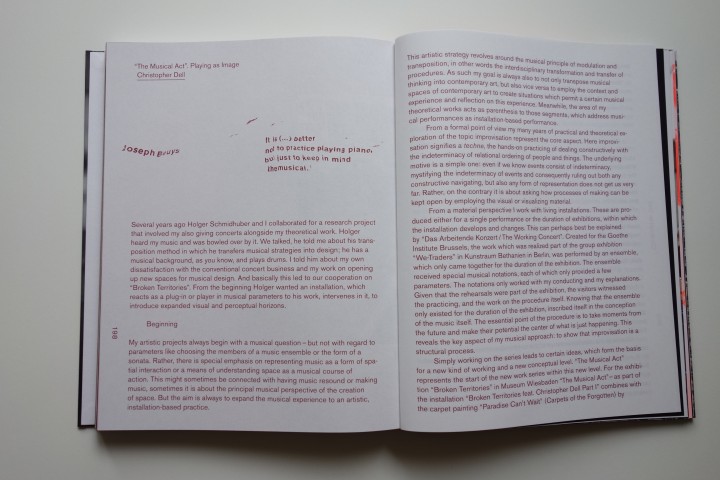 "The Musical Act". Playing as Image
Christopher Dell
Joseph Beuys
It is (...) better
not to practice playing piano,
but just to keep in mind
the musical.
Several years ago Holger Schmidhuber and I collaborated for a research project
that involved my also giving concerts alongside my theoretical work. Holger
heard my music and was bowled over by it. We talked, he told me about his trans-
position method in which he transfers musical strategies into design; he has a
musical background, as you know, and plays drums. I told him about my own
dissatisfaction with the conventional concert business and my work on opening
up new spaces for musical design. And basically this led to our cooperation on
"Broken Territories". From the beginning Holger wanted an installation, which
reacts as a plug-in or player in musical parameters to his work, intervenes in it, to
introduce expanded visual and perceptual horizons.
Beginning
198
My artistic projects always begin with a musical question – but not with regard to
parameters like choosing the members of a music ensemble or the form of a
sonata. Rather, there is special emphasis on representing music as a form of spa-
tial interaction or a means of understanding space as a musical course of
action. This might sometimes be connected with having music resound or making
music, sometimes it is about the principal musical perspective of the creation
of space. But the aim is always to expand the musical experience to an artistic,
installation-based practice.
This artistic strategy revolves around the musical principle of modulation and
transposition, in other words the interdisciplinary transformation and transfer of
procedures. As such my goal is always also to not only transpose musical
thinking into contemporary art, but also vice versa to employ the context and
spaces of contemporary art to create situations which permit a certain musical
experience and reflection on this experience. Meanwhile, the area of my
theoretical works acts as parenthesis to those segments, which address musi-
cal performances as installation-based performance.
From a formal point of view my many years of practical and theoretical ex-
ploration of the topic improvisation represent the core aspect. Here improvi-
sation signifies a techne, the hands-on practicing of dealing constructively with
the indeterminacy of relational ordering of people and things. The underlying
motive is a simple one: even if we know events consist of indeterminacy,
mystifying the indeterminacy of events and consequently ruling out both any
constructive navigating, but also any form of representation does not get us very
far. Rather, on the contrary it is about asking how processes of making can be
kept open by employing the visual or visualizing material.
From a material perspective I work with living installations. These are pro-
duced either for a single performance or the duration of exhibitions, within which
the installation develops and changes. This can perhaps best be explained
by "Das Arbeitende Konzert / The Working Concert". Created for the Goethe
Institute Brussels, the work which was realised part of the group exhibition
"We-Traders" in Kunstraum Bethanien in Berlin, was performed by an ensemble,
which only came together for the duration of the exhibition. The ensemble
received special musical notations, each of which only provided a few
parameters. The notations only worked with my conducting and my explanations.
Given that the rehearsals were part of the exhibition, the visitors witnessed
the practicing, and the work on the procedure itself. Knowing that the ensemble
only existed for the duration of the exhibition, inscribed itself in the conception
of the music itself. The essential point of the procedure is to take moments from
the future and make their potential the center of what is just happening. This
reveals the key aspect of my musical approach: to show that improvisation is a
structural process.
Simply working on the series leads to certain ideas, which form the basis
for a new kind of working and a new conceptual level. "The Musical Act"
represents the start of the new work series within this new level. For the exhibi-
tion "Broken Territories" in Museum Wiesbaden "The Musical Act" – as part of
the installation "Broken Territories feat. Christopher Dell Part I" combines with
the carpet painting "Paradise Can't Wait" (Carpets of the Forgotten) by